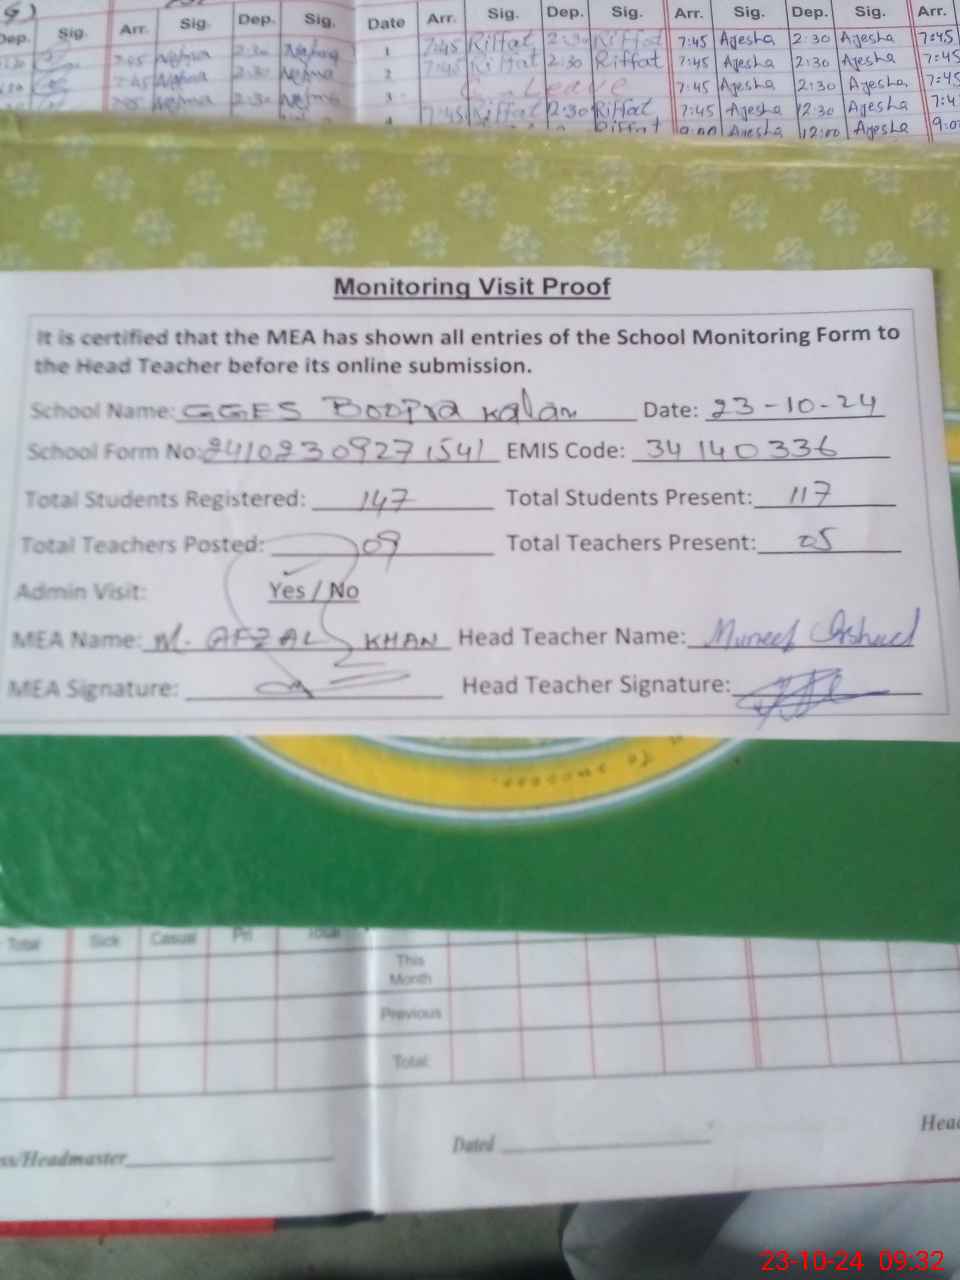 Dep. Sig. Arr. Sig. Dep. Sig. Date Arr. Sig. Dep. Sig. Arr. Sig. Dep. Sig. Arr.
1 7:45 Riffat 2:30 Riffat 7:45 Ayesha 2:30 Ayesha 7:45
2 7:45 Riffat 2:30 Riffat 7:45 Ayesha 2:30 Ayesha 7:45
3 C. Leave 7:45 Ayesha 2:30 Ayesha 7:45
4 7:45 Riffat 2:30 Riffat 7:45 Ayesha 12:30 Ayesha 7:4
Riffat 9:00 Ayesha 12:00 Ayesha 9:0
Monitoring Visit Proof
It is certified that the MEA has shown all entries of the School Monitoring Form to
the Head Teacher before its online submission.
School Name: GGES Boopra Kalan Date: 23-10-24
School Form No: 24102309271541 EMIS Code: 34140336
Total Students Registered: 147 Total Students Present: 117
Total Teachers Posted: 09 Total Teachers Present: 05
Admin Visit: Yes / No
MEA Name: M. AFZAL KHAN Head Teacher Name:
MEA Signature: Head Teacher Signature:
Total Sick Casual Pri Total
This
Month
Previous
Total
ss/Headmaster Dated Head
23-10-24 09:32